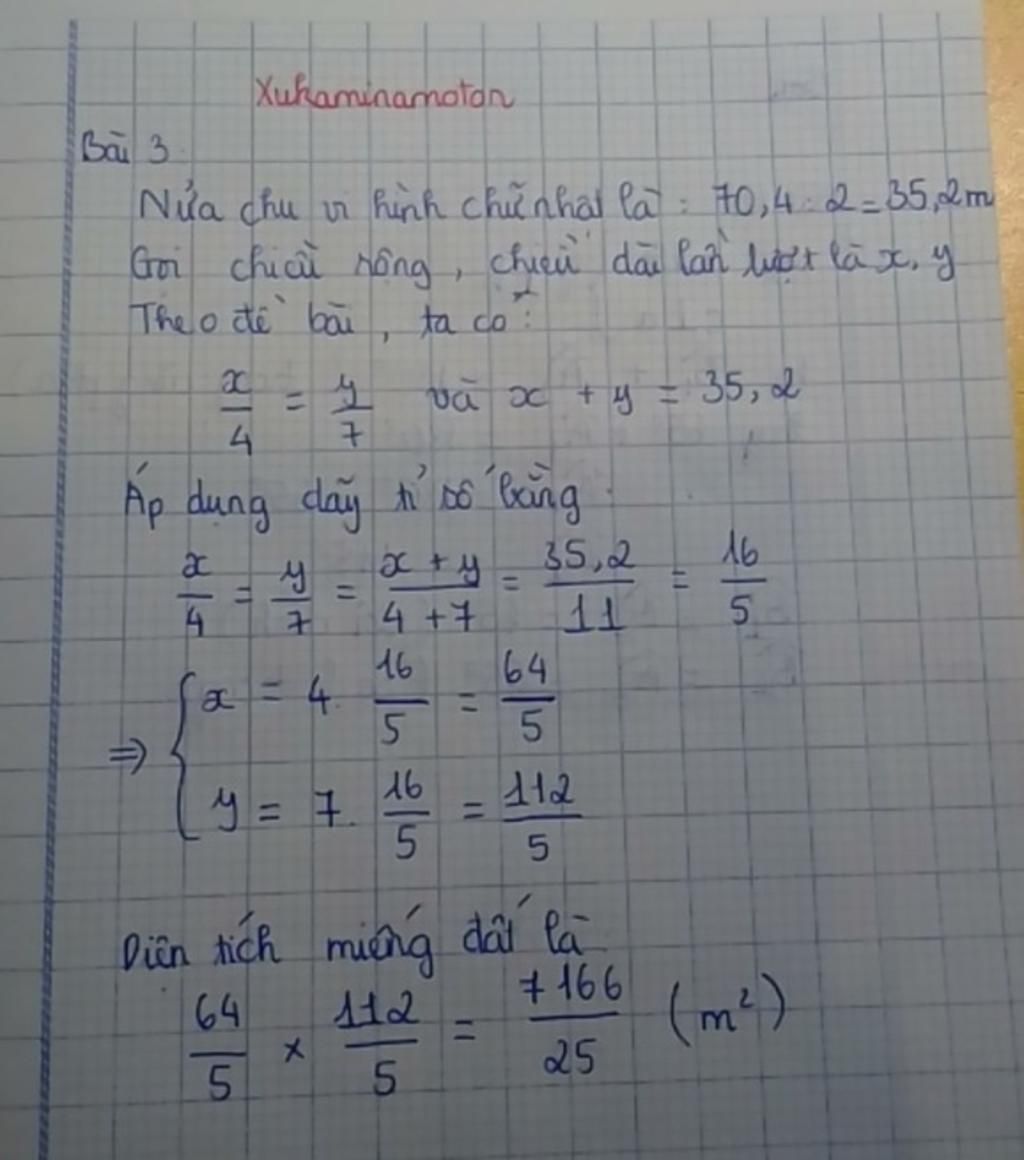 Xukaminamoton
Bài 3
Nửa chu vi hình chữ nhật là : 70,4 : 2 = 35,2m
Gọi chiều rộng, chiều dài lần lượt là x, y
Theo đề bài, ta có :
x/4 = y/7 và x + y = 35,2
Áp dụng dãy tỉ số bằng
x/4 = y/7 = x + y/4 + 7 = 35,2/11 = 16/5
⇒ { x = 4. 16/5 = 64/5
y = 7. 16/5 = 112/5
Diện tích miếng đất là
64/5 × 112/5 = 7166/25 (m²)